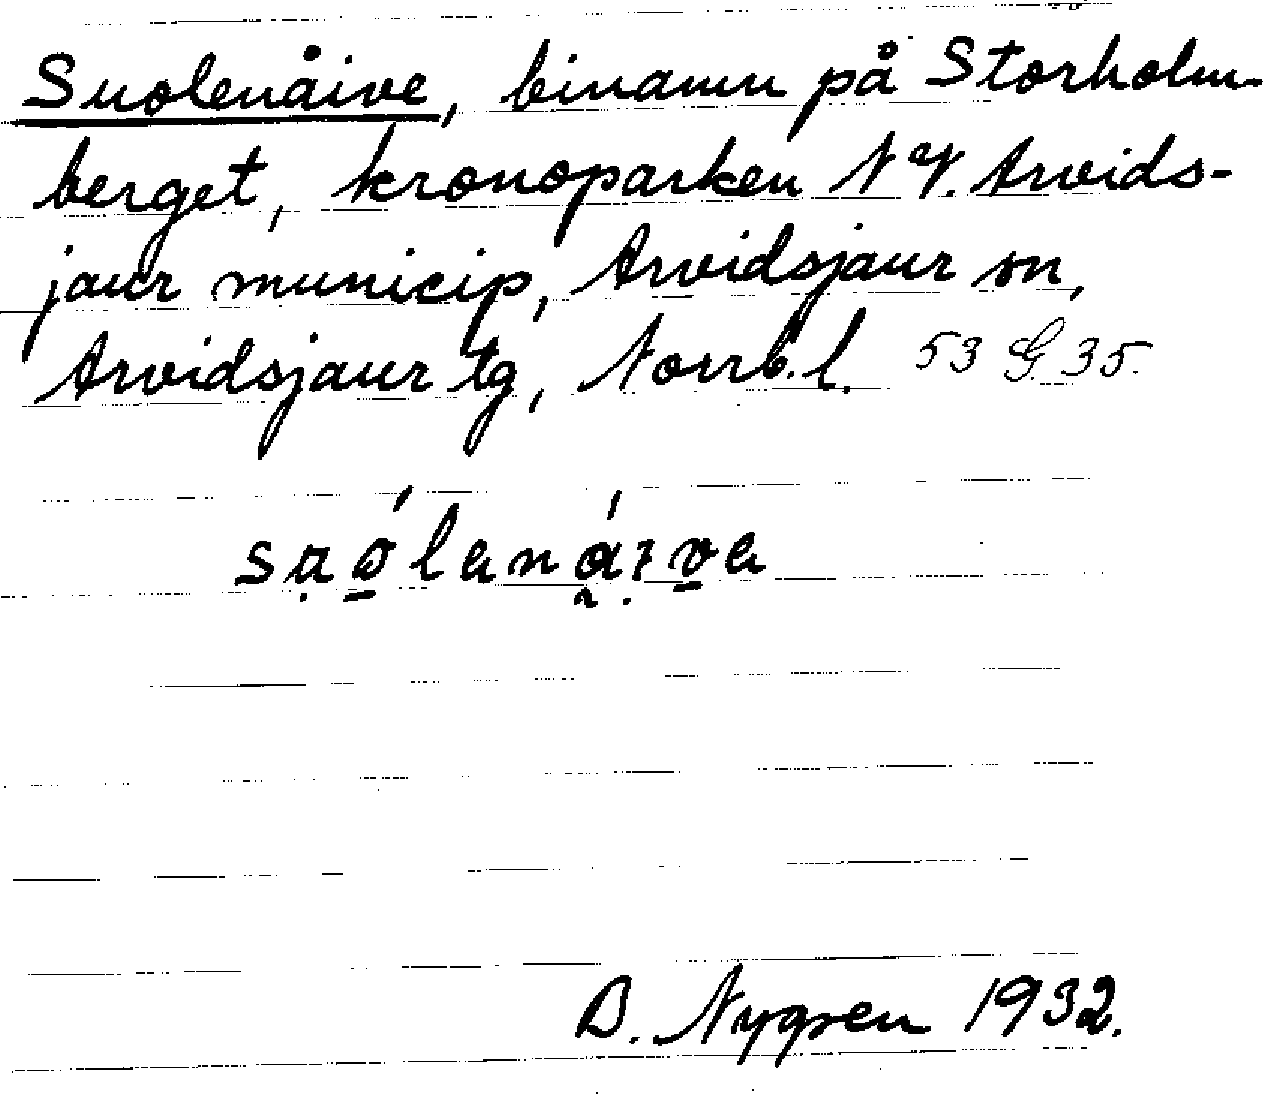 Suolenåive, binamn på Storholm-
berget, kronoparken N V. Arvids-
jaur municip, Arvidsjaur sn,
Arvidsjaur tg, Norrb. l. 53 G. 35.
B. Nygren 1932.